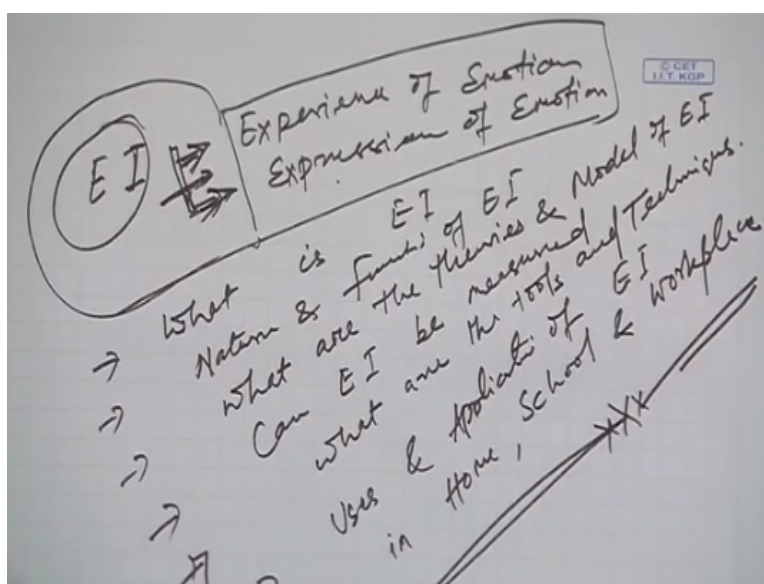 © CET
I.I.T. KGP
EI
Experience of Emotion
Expression of Emotion
→ What is EI
Nature & Functi of EI
→ What are the theories & Model of EI
→ Can EI be measured
What are the tools and Techniques.
→ Uses & Applicati of EI
in Home, School & Workplace